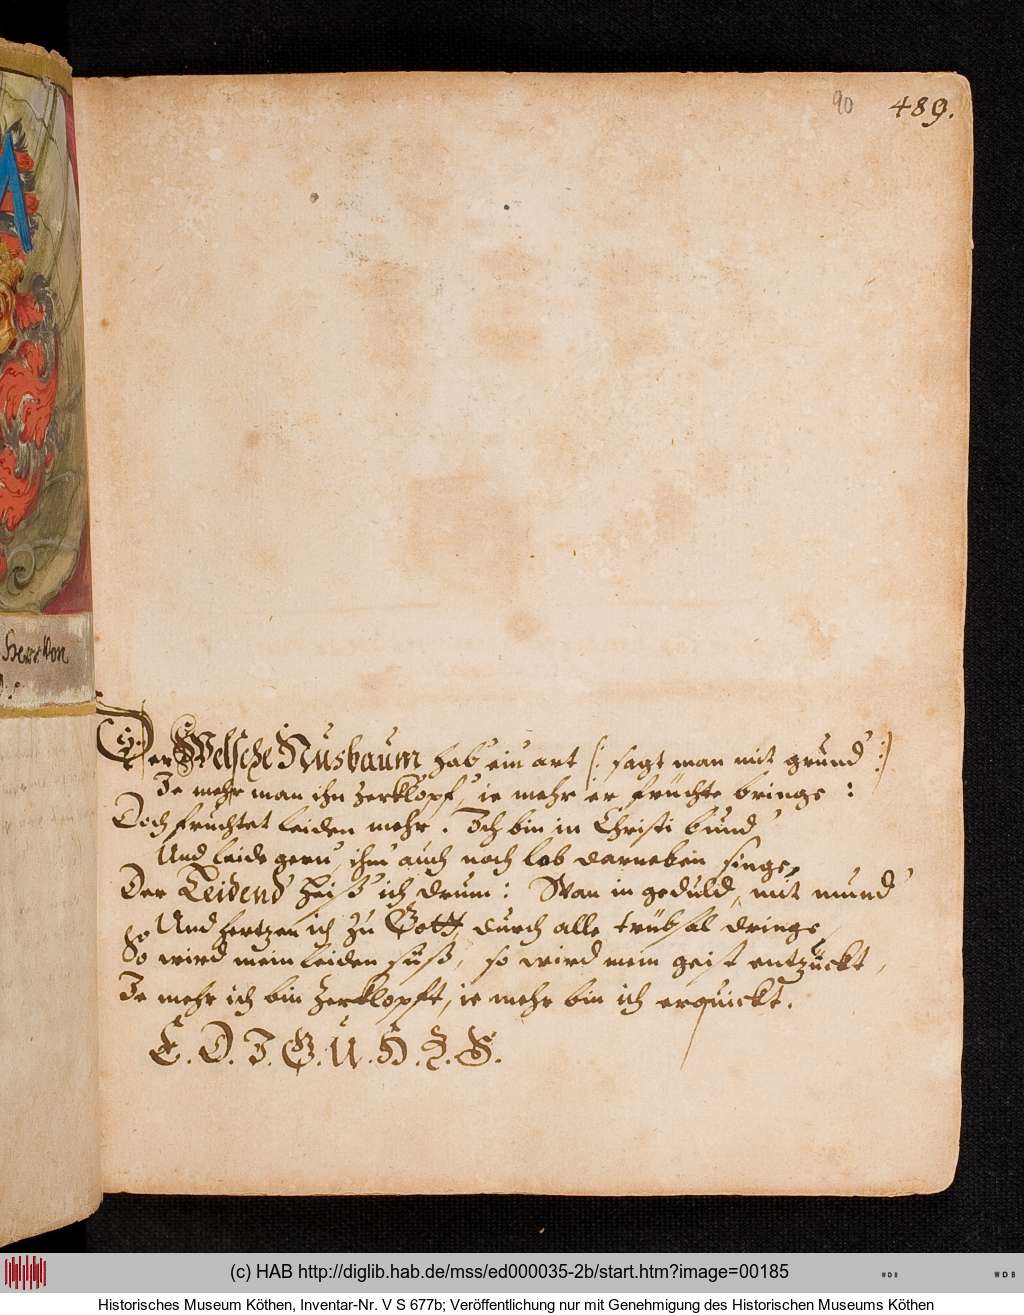 90 489.
Herr Von
Der Welsche Nusbaum hab ein art (: sagt man mit grund :)
Je mehr man ihn zerklopf, ie mehr er früchte brings :
Doch fruchtet leiden mehr. Ich bin in Christi bund
Und leide gern, ihm auch noch lob darneben sings,
Der Leidend heiß ich drum : Wan in geduld, mit mund
Und hertzen ich zu Gott, durch alle trübsal drings,
So wird mein leiden süß, so wird mein geist entzückt,
Je mehr ich bin zerklopft, ie mehr bin ich erquickt.
E. D. J. G. U. H. Z. S.
(c) HAB http://diglib.hab.de/mss/ed000035-2b/start.htm?image=00185
Historisches Museum Köthen, Inventar-Nr. V S 677b; Veröffentlichung nur mit Genehmigung des Historischen Museums Köthen